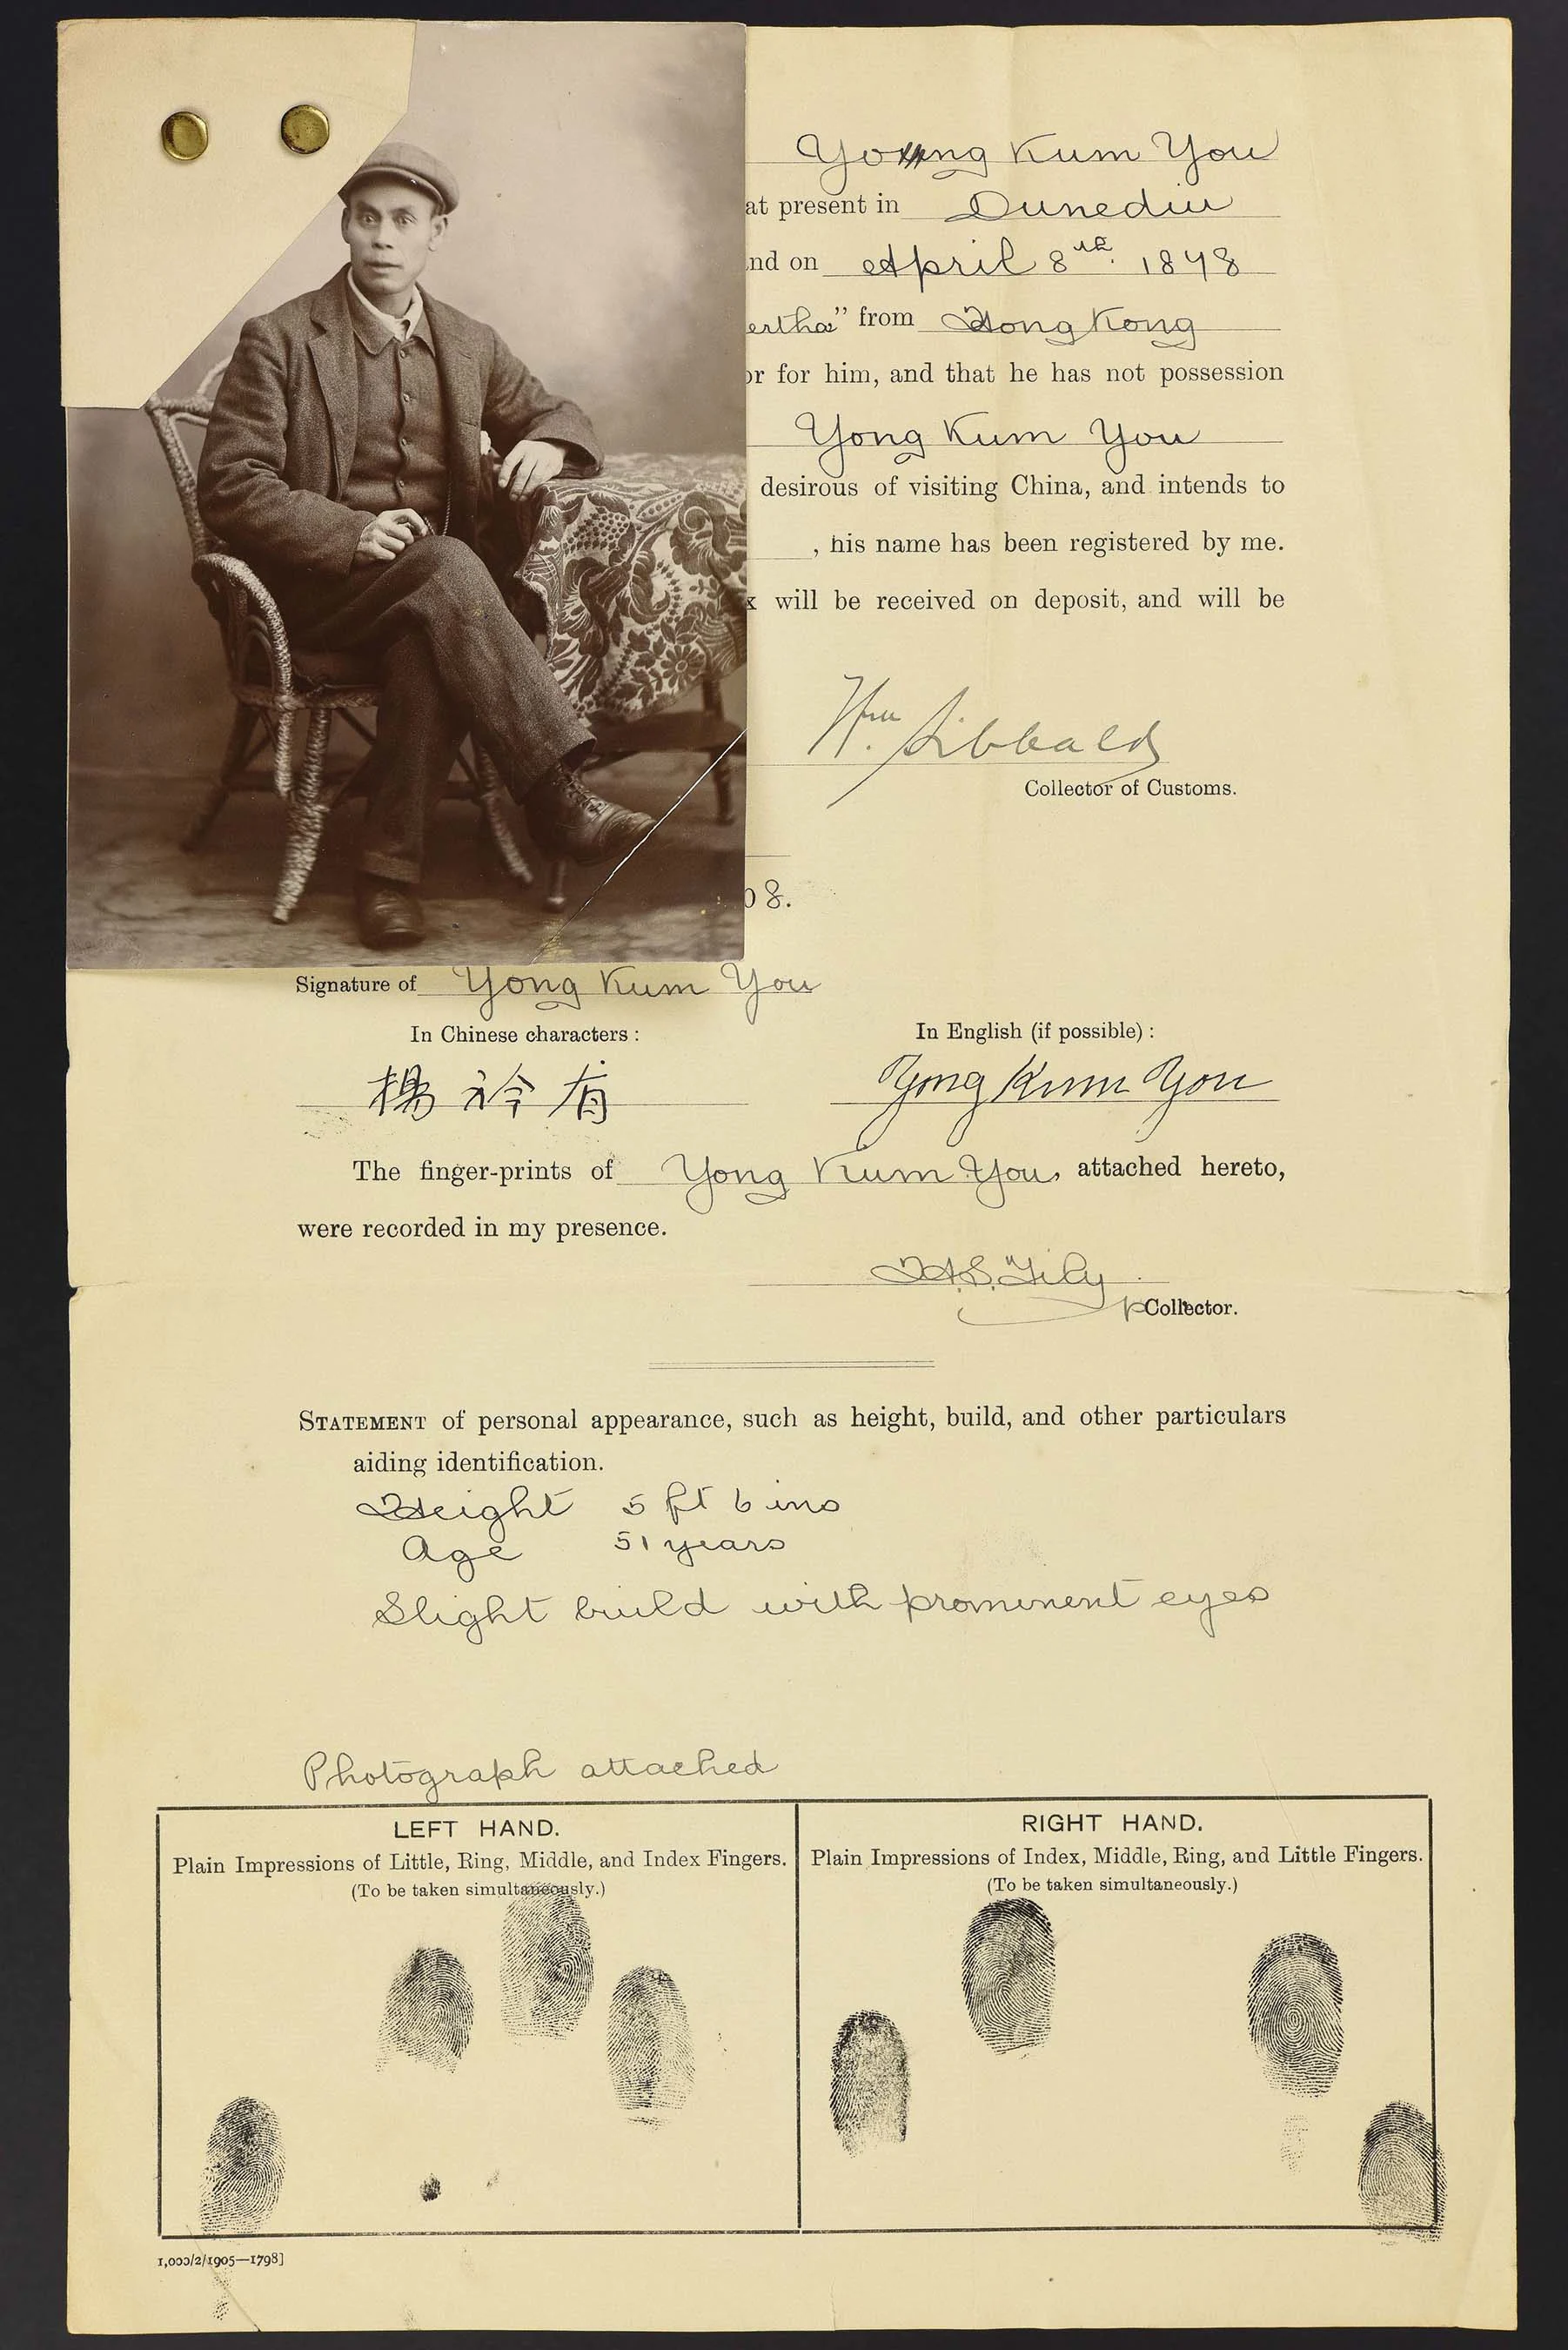 Yong Kum You
at present in Dunedin
nd on April 8th. 1878
ertha" from Hong Kong
or for him, and that he has not possession
Yong Kum You
desirous of visiting China, and intends to
, his name has been registered by me.
x will be received on deposit, and will be
Wm. Sibbald
Collector of Customs.
08.
Signature of Yong Kum You
In Chinese characters: In English (if possible):
楊 衿 有 Yong Kum You
The finger-prints of Yong Kum You, attached hereto,
were recorded in my presence.
H.S. Tily
p Collector.
STATEMENT of personal appearance, such as height, build, and other particulars
aiding identification.
Height 5 ft 6 ins
Age 51 years
Slight build with prominent eyes
Photograph attached
LEFT HAND.
Plain Impressions of Little, Ring, Middle, and Index Fingers.
(To be taken simultaneously.)
RIGHT HAND.
Plain Impressions of Index, Middle, Ring, and Little Fingers.
(To be taken simultaneously.)
1,000/2/1905—1798]